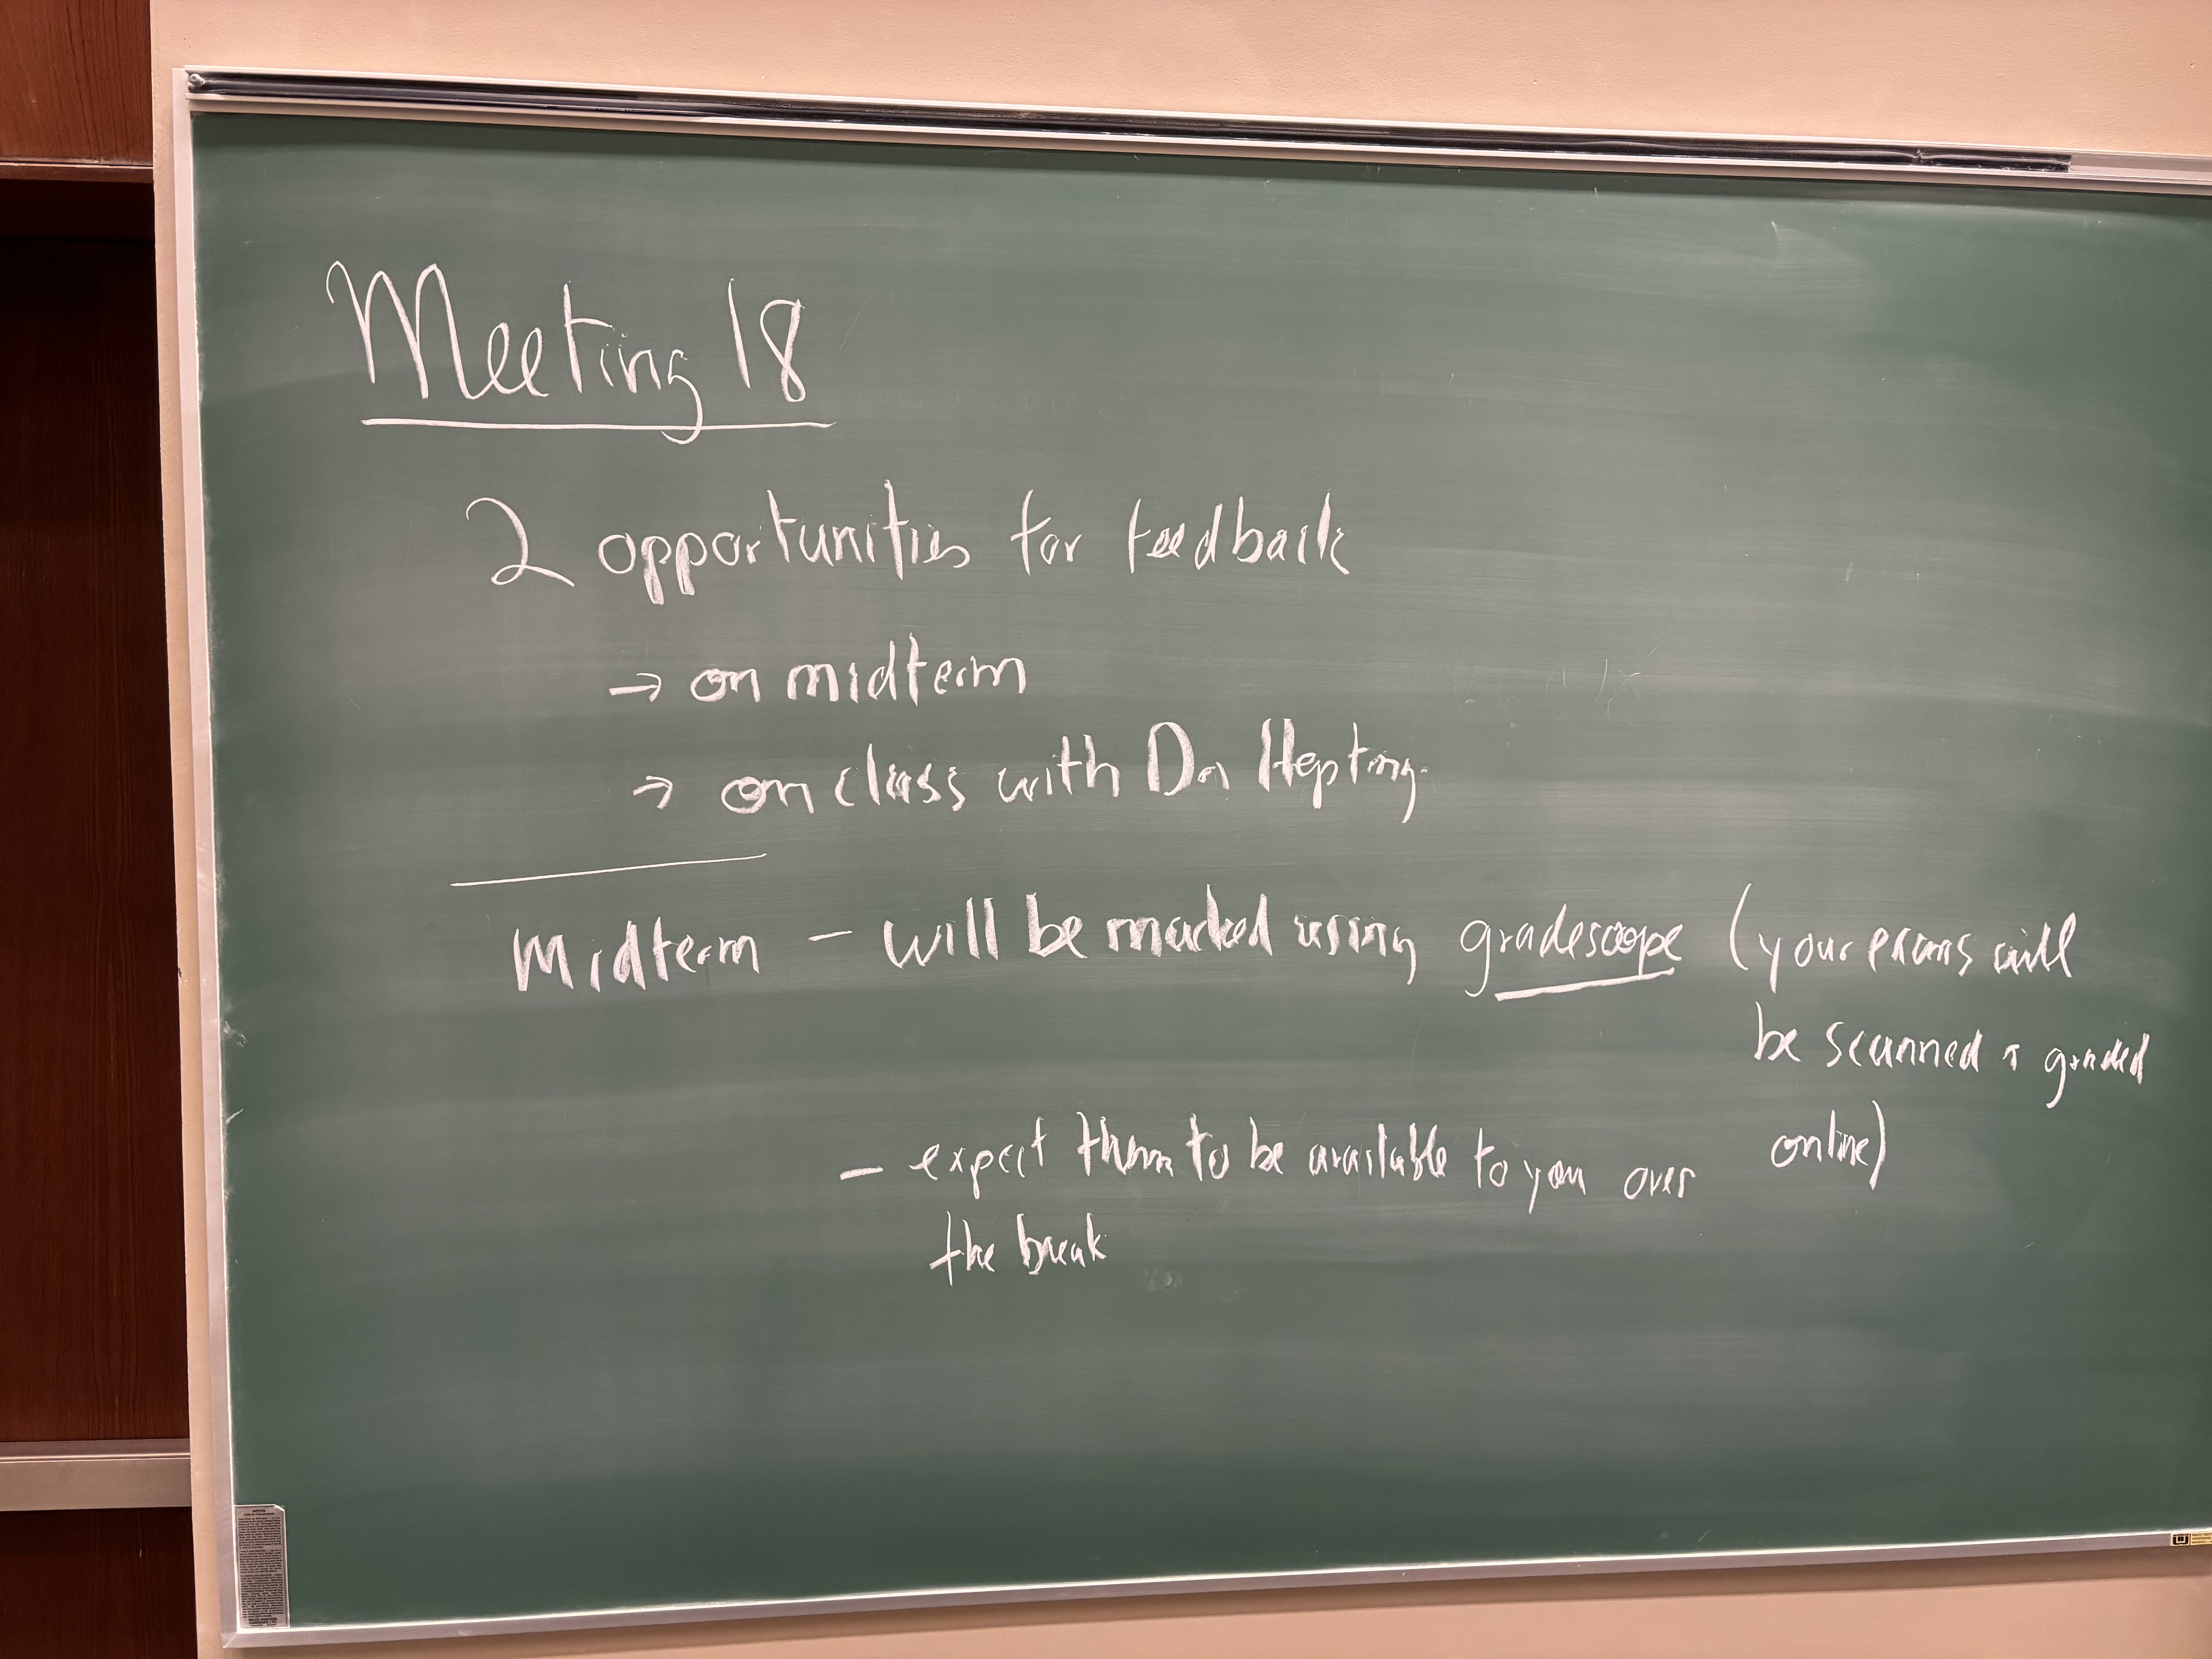 Meeting 18
2 opportunities for feedback
→ on midterm
→ on class with Dr. Hepting.
Midterm - will be marked using gradescope (your exams will
be scanned & graded
online)
- expect them to be available to you over
the break